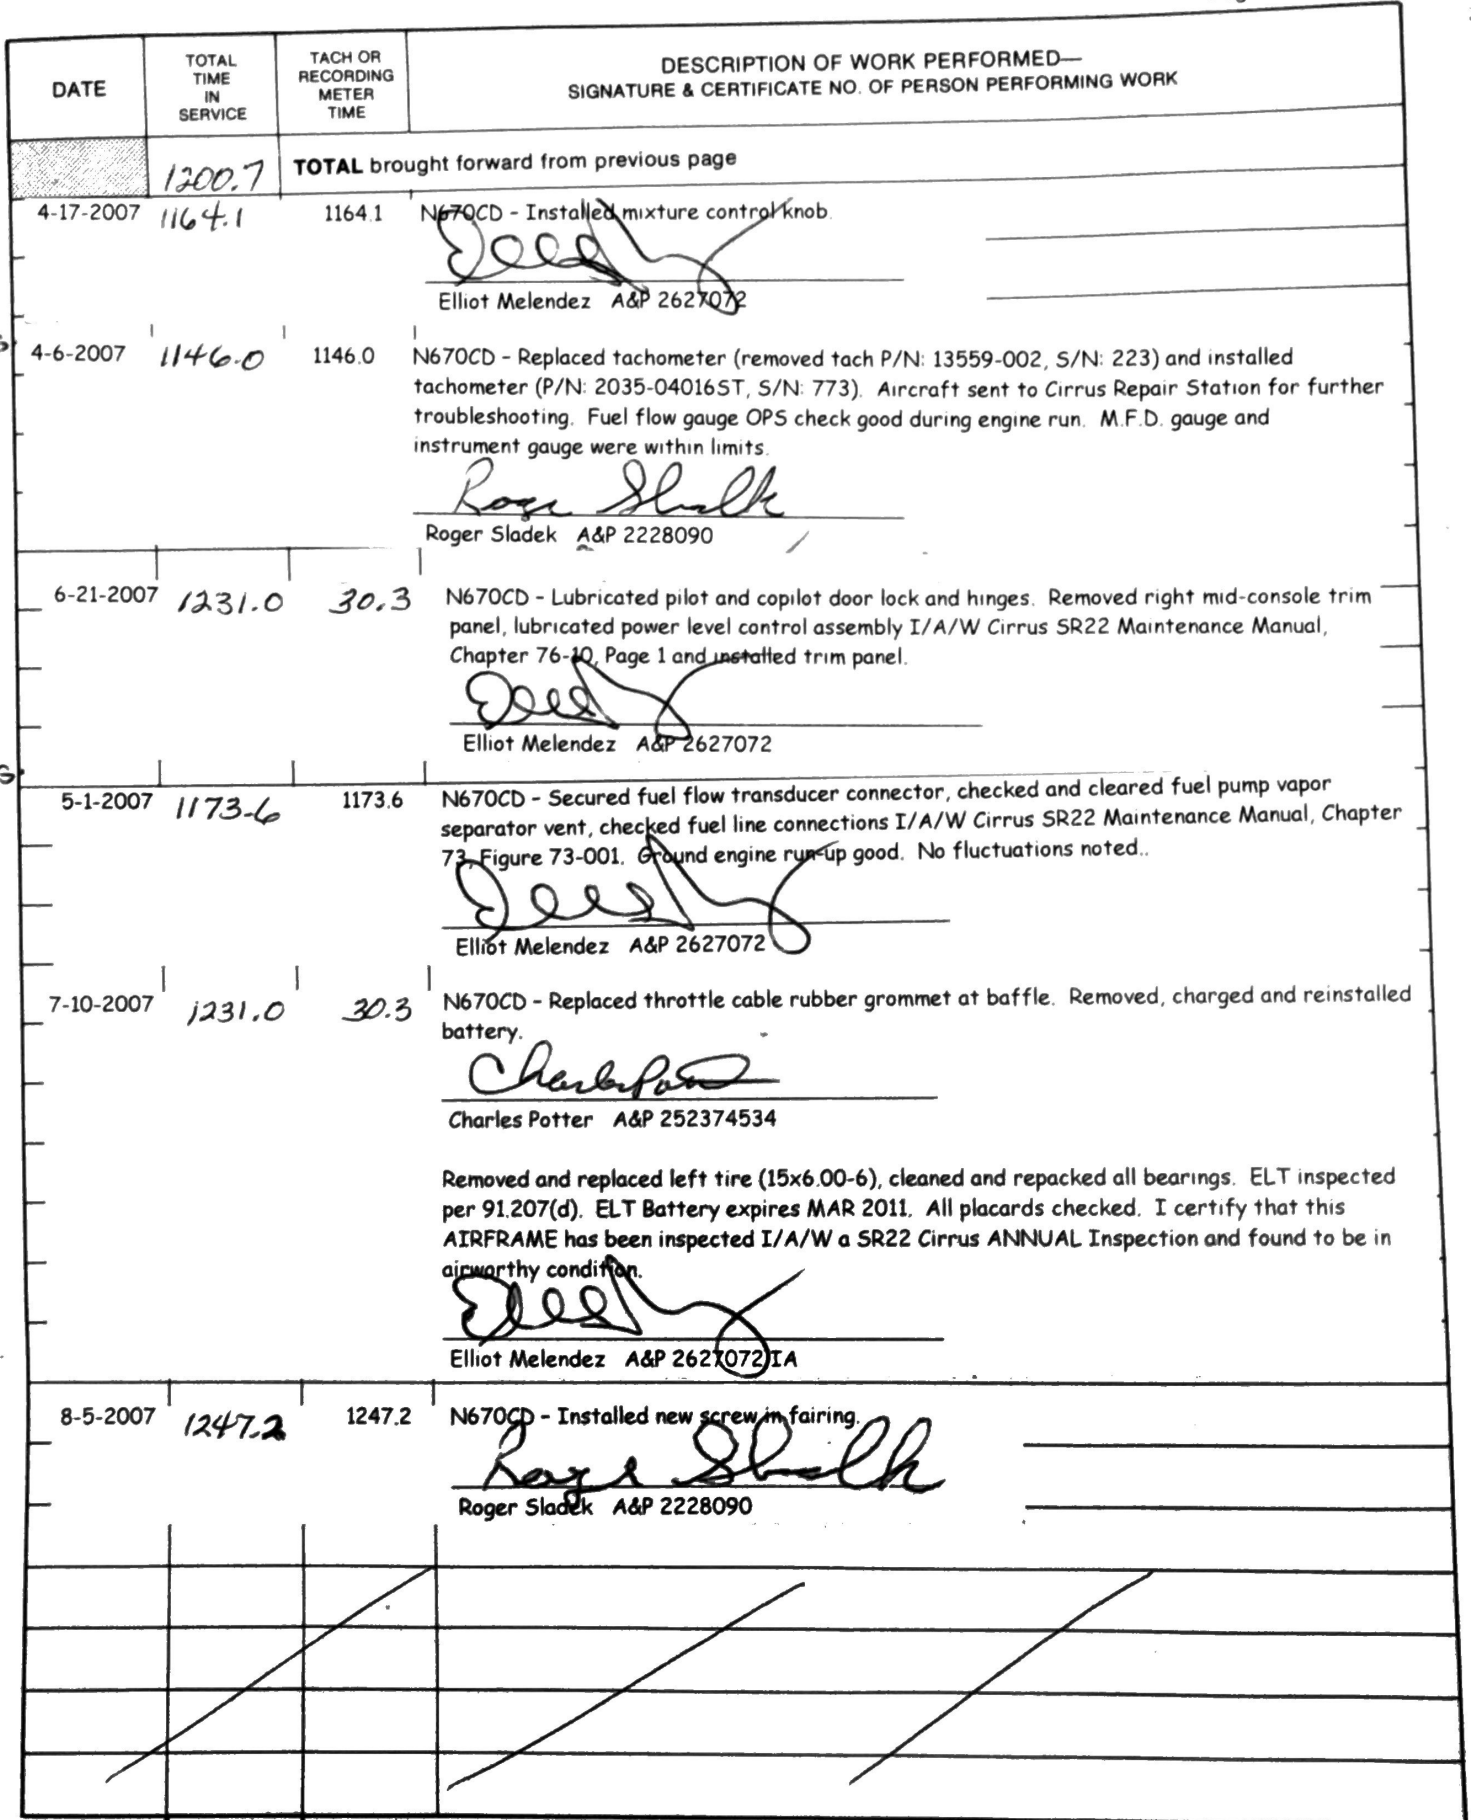 DATE
TOTAL
TIME
IN
SERVICE
TACH OR
RECORDING
METER
TIME
DESCRIPTION OF WORK PERFORMED—
SIGNATURE & CERTIFICATE NO. OF PERSON PERFORMING WORK
1200.7 TOTAL brought forward from previous page
4-17-2007 1164.1 1164.1 N670CD - Installed mixture control knob.
Elliot Melendez A&P 2627072
4-6-2007 1146.0 1146.0 N670CD - Replaced tachometer (removed tach P/N: 13559-002, S/N: 223) and installed
tachometer (P/N: 2035-04016ST, S/N: 773). Aircraft sent to Cirrus Repair Station for further
troubleshooting. Fuel flow gauge OPS check good during engine run. M.F.D. gauge and
instrument gauge were within limits.
Roger Sladek A&P 2228090
6-21-2007 1231.0 30.3 N670CD - Lubricated pilot and copilot door lock and hinges. Removed right mid-console trim
panel, lubricated power level control assembly I/A/W Cirrus SR22 Maintenance Manual,
Chapter 76-10, Page 1 and installed trim panel.
Elliot Melendez A&P 2627072
5-1-2007 1173.6 1173.6 N670CD - Secured fuel flow transducer connector, checked and cleared fuel pump vapor
separator vent, checked fuel line connections I/A/W Cirrus SR22 Maintenance Manual, Chapter
73, Figure 73-001. Ground engine run-up good. No fluctuations noted..
Elliot Melendez A&P 2627072
7-10-2007 1231.0 30.3 N670CD - Replaced throttle cable rubber grommet at baffle. Removed, charged and reinstalled
battery.
Charles Potter A&P 252374534
Removed and replaced left tire (15x6.00-6), cleaned and repacked all bearings. ELT inspected
per 91.207(d). ELT Battery expires MAR 2011. All placards checked. I certify that this
AIRFRAME has been inspected I/A/W a SR22 Cirrus ANNUAL Inspection and found to be in
airworthy condition.
Elliot Melendez A&P 2627072 IA
8-5-2007 1247.2 1247.2 N670CD - Installed new screw in fairing.
Roger Sladek A&P 2228090